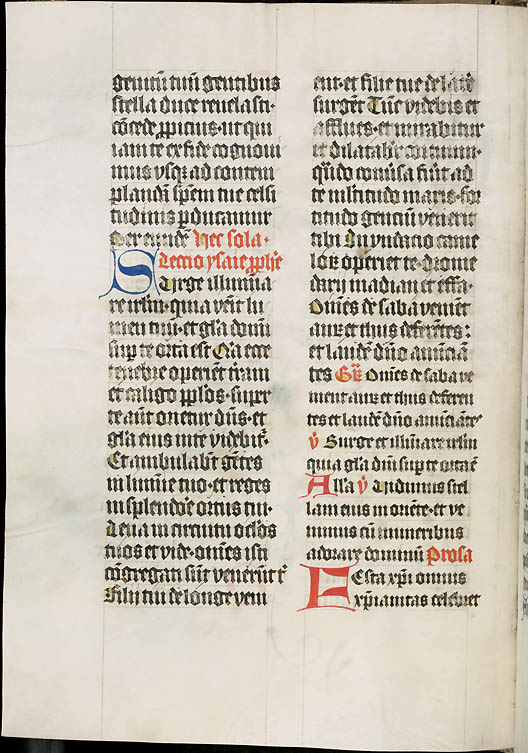 genitū tuū gentibus
stella duce reuelasti·
cōcede ꝓpicius·ut qui
iam te ex fide cognoui
mus vsqꝫ ad contem
plandā spēm tue celsi
tudinis ꝑducamur
Per eundē Nec sola·
Lectio ysaie ꝓphe
Surge illumina
re irlm·quia venit lu
men tuū·et gl̄a domī
suꝑ te orta est Q̄a ecce
tenebre operient trām
et caligo pplos·super
te aūt orietur dn̄s·et
gl̄a eius in te videbit᷑·
Et ambulabūt gētes
in lumīe tuo·et reges
in splendore ortus tui·
Leua in circuitu oc̄los
tuos et vide·om̄es isti
cōgregati sūt venerūt t᷑
Filij tui de longe veni
ent·et filie tue de lat̄e
surgēt Tūc videbis et
afflues·et mirabitur
et dilatabit᷑ cor tuum·
qn̄do conūsa fūit ad
te ml̄titudo maris·for
titudo genciū venerit
tibi Inundacio came
loꝝ operiet te·drome
darij madian et effa·
Om̄es de saba venient
aurū et thus deferētes:
et laudē dn̄o annūciā
tes Gr̄ Om̄es de saba ve
nient aurū et thus deferen
tes et laudē dn̄o annūciātes
℣ Surge et illūinare irlm
quia gl̄a dn̄i suꝑ te orta ē
Alla ℣ Vidimus stel
lam eius in oriēte·et ve
nimus cū muneribus
adorare dominū Prosa
Festa xp̄i omnis
xp̄ianitas celebret